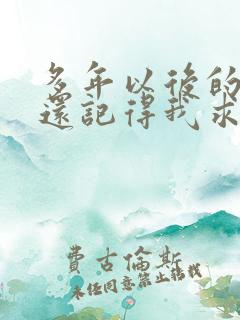 多年以後的
還記得我求
費古倫斯
未經同意禁止轉載